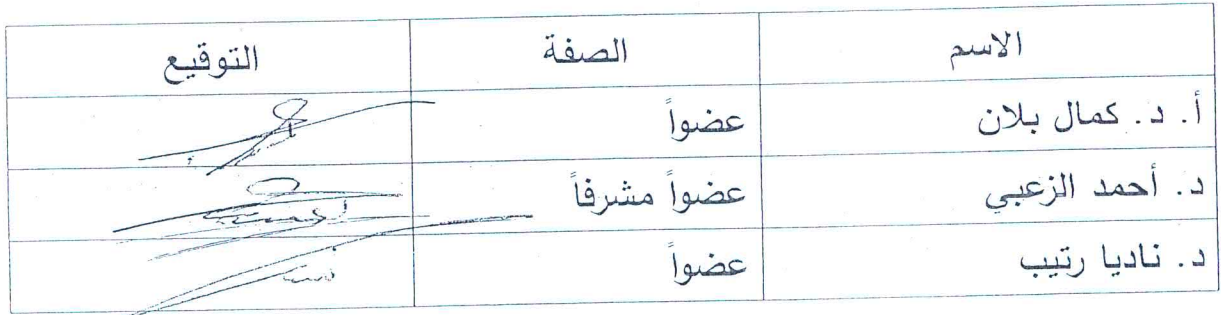 الاسم الصفة التوقيع
أ. د. كمال بلان عضواً
د. أحمد الزعبي عضواً مشرفاً
د. ناديا رتيب عضواً